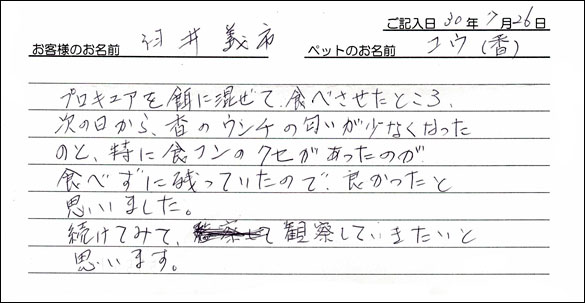 ご記入日 30年7月26日
お客様のお名前 井 義市 ペットのお名前 コウ(香)
プロキュアを餌に混ぜて、食べさせたところ、
次の日から、香のウンチの匂いが少なくなった
のと、特に食フンのクセがあったのが
食べずに残っていたので、良かったと
思いました。
続けてみて、観察していきたいと
思います。